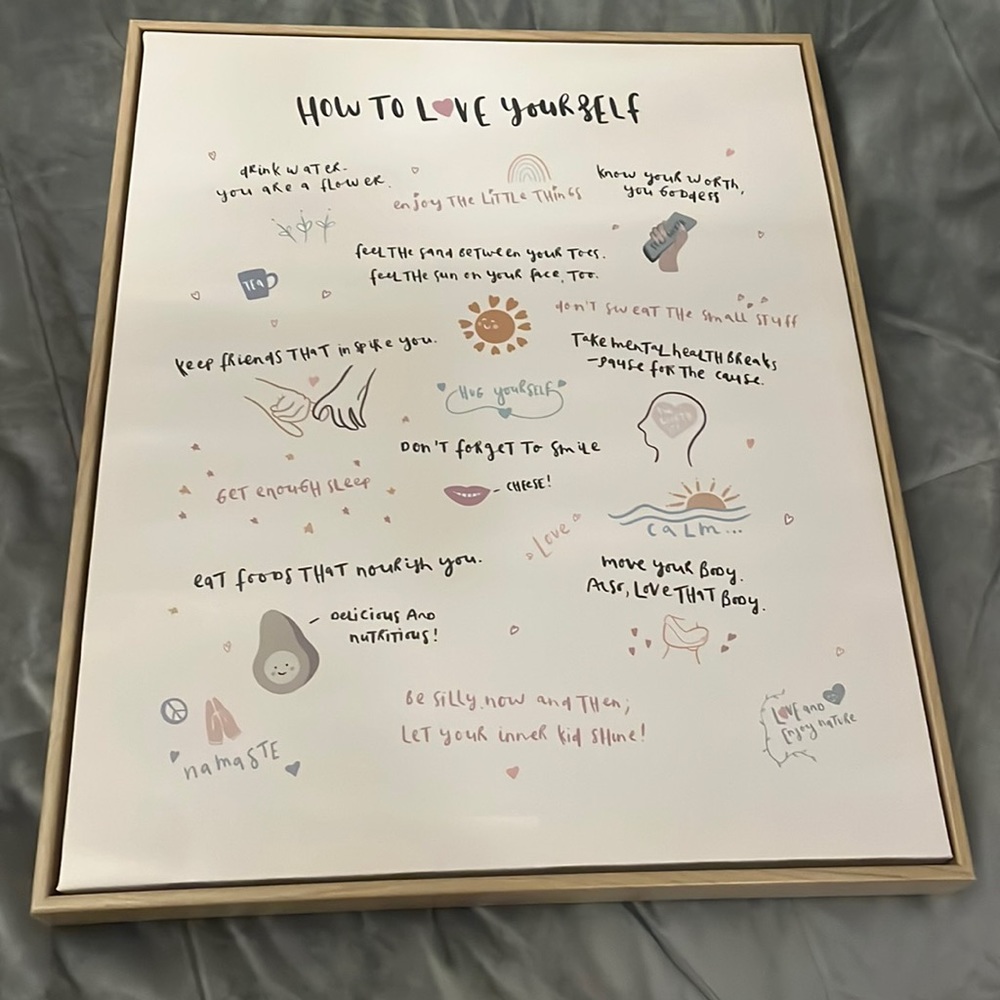 HOW TO LOVE YOURSELF
drink water.
you are a flower.
enjoy THE LITTLE THINGS
know your worth,
you GODDESS
feel THE sand BETWEEN your TOES.
feel THE sun on your face, TOO.
TEA
don't sweat THE small stuff
keep friends THAT inspire you.
Take mental health Breaks
-pause for the cause.
HUG yourself
Don't forget to smile
CHEESE!
GET enough sleep
Love
CALM...
eat foods THAT nourish you.
move your Body.
Also, LOVE THAT Body.
Delicious And
nutritious!
Be silly now and then;
Let your inner kid shine!
LOVE and
Enjoy nature
namaste